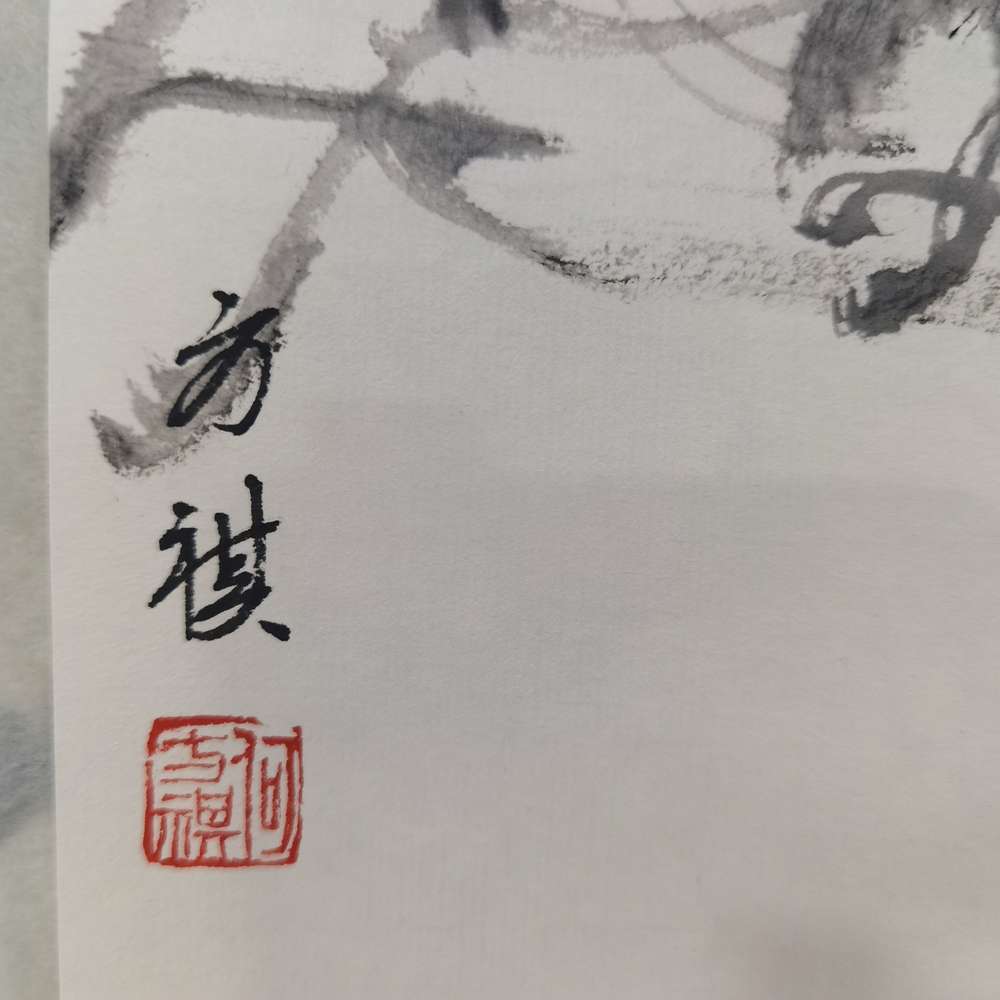 方祺
何
方祺